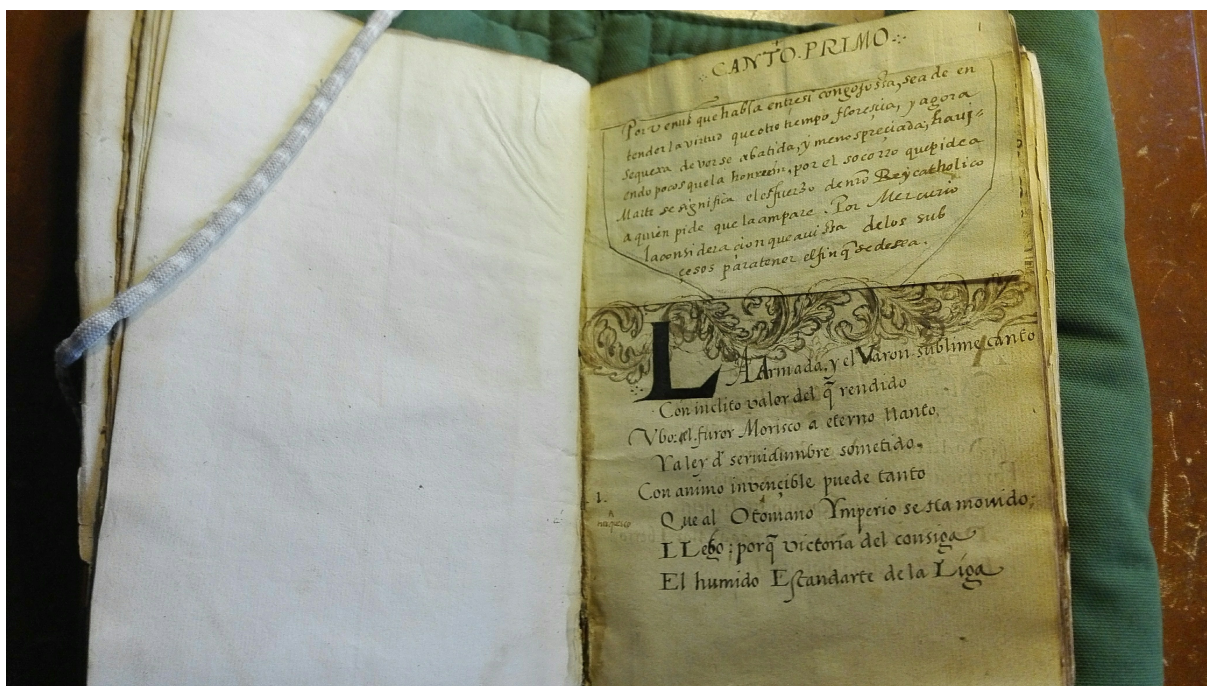 1
CANTO.PRIMO.
Por venus que habla entresi congojosa, sea de en
tender la virtud que otro tiempo florescia, y agora
sequexa de verse abatida, y menospreciada, havi-
endo pocos que la honrren, por el socorro que pide a
Marte se significa el esfuerzo de nro Rey catholico
a quien pide que la ampare. Por Mercurio
la consideracion que auista delos sub
cesos para tener el fin q̃ se desea.
LA Armada, y el Varon sublime canto
Con inclito valor del q̃ rendido
Vbo: el furor Morisco a eterno llanto,
Ya ley d' seruidumbre sometido,
1. Con animo invencible puede tanto
Que al Otomano Ymperio se sta movido;
LLebo; porq̃ victoria del consiga
El humido Estandarte de la Liga